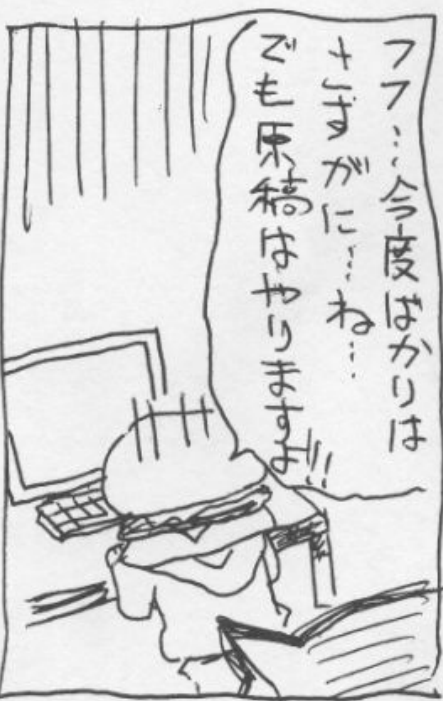 フフ…今度ばかりは
さすがに…ね…
でも原稿はやりますよ!!